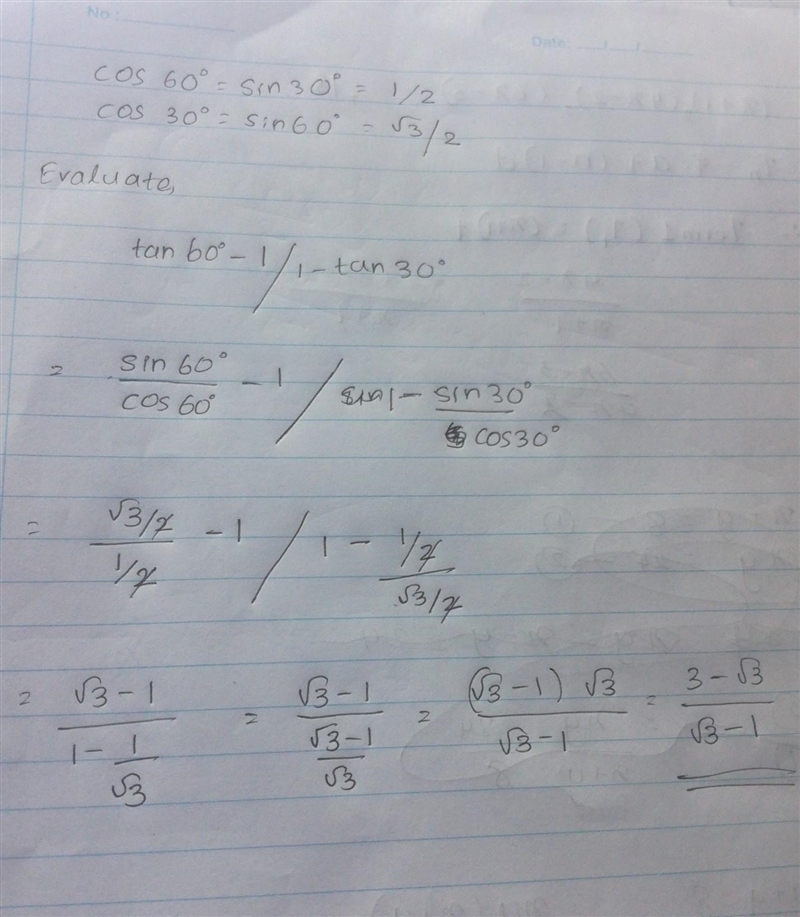 No:
Date:
cos 60° = sin 30° = 1/2
cos 30° = sin 60° = √3/2
Evaluate,
tan 60° - 1 / 1 - tan 30°
= sin 60°/cos 60° - 1 / 1 - sin 30°/cos 30°
= (√3/2)/(1/2) - 1 / 1 - (1/2)/(√3/2)
= (√3 - 1)/(1 - 1/√3) = (√3 - 1)/((√3 - 1)/√3) = (√3 - 1) √3/(√3 - 1) = (3 - √3)/(√3 - 1)